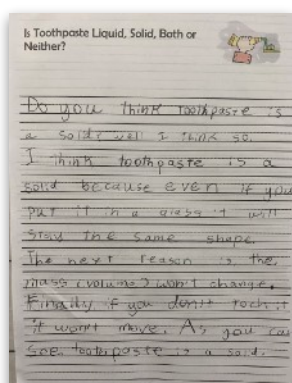 Is Toothpaste Liquid, Solid, Both or
Neither?
Do you think toothpaste is
a solid? well I think so.
I think toothpaste is a
solid because even if you
put it in a glass it will
stay the same shape.
The next reason is the
mass (volume) won't change.
Finally if you don't toch it
it won't move. As you can
see, toothpaste is a solid.